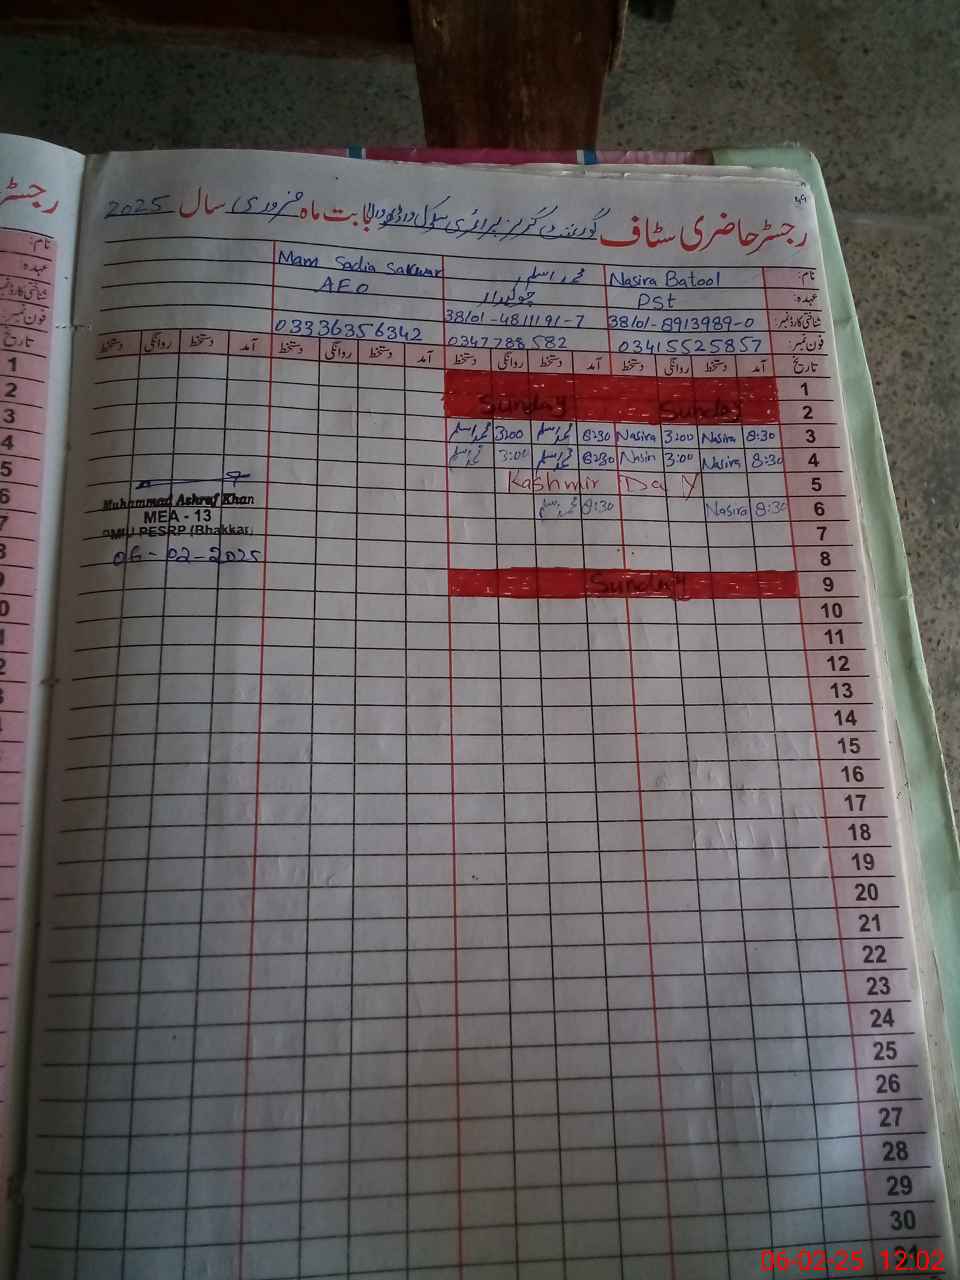 49
رجسٹر حاضری سٹاف گورنمنٹ گرلز پرائمری سکول بابت ماہ فروری سال 2025
نام: Nasira Batool محمد اسلم Mam Sadia Sarwar
عہدہ: PSt چوکیدار AEO
شناختی کارڈ نمبر: 38101-8913989-0 38101-4811191-7
فون نمبر: 03415525857 0347788582 03336356342
تاریخ آمد دستخط روانگی دستخط آمد دستخط روانگی دستخط آمد دستخط روانگی دستخط آمد دستخط روانگی دستخط
1
2 Sunday Sunday
3 8:30 Nasira 3:00 Nasira 8:30 محمد اسلم 3:00 محمد اسلم
4 8:30 Nasira 3:00 Nasir 8:30 محمد اسلم 3:00 محمد اسلم
5 Kashmir Day
6 8:30 Nasira 8:30 محمد اسلم
7
8
9 Sunday
10
11
12
13
14
15
16
17
18
19
20
21
22
23
24
25
26
27
28
29
30
31
Muhammad Ashraf Khan
MEA - 13
PESRP (Bhakkar)
06-02-2025
رجسٹر
نام:
عہدہ:
شناختی کارڈ نمبر
فون نمبر:
تاریخ
1
2
3
4
5
6
7
8
9
0
1
2
3
06-02-25 12:02